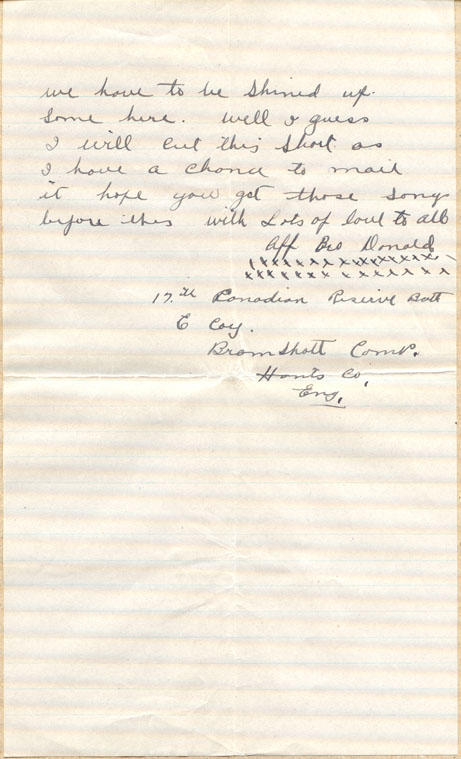 we have to be Shined up
some here. well I guess
I will cut this Short as
I have a chance to mail
it hope you got those songs
before this with Lots of love to all
Aff Bro Donald
xxxxxxxxxxxxxxxx
xxxxxxxxxxxxxxxx
17.th Canadian Reserve Batt
E Coy.
Bramshott Camp.
Hants Co,
Eng,